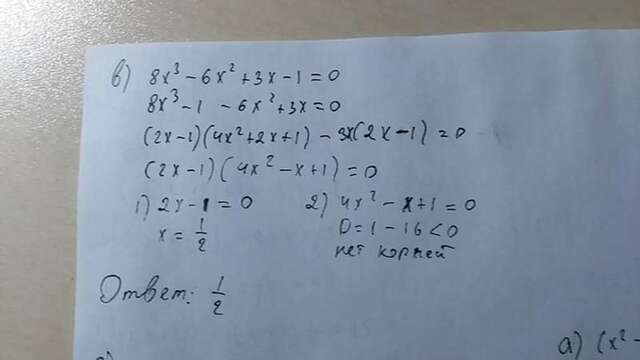 в) 8x³ - 6x² + 3x - 1 = 0
8x³ - 1 - 6x² + 3x = 0
(2x-1)(4x²+2x+1) - 3x(2x-1) = 0
(2x-1)(4x² - x + 1) = 0
1) 2x - 1 = 0
x = 1/2
2) 4x² - x + 1 = 0
D = 1 - 16 < 0
нет корней
Ответ: 1/2
а) (x² -